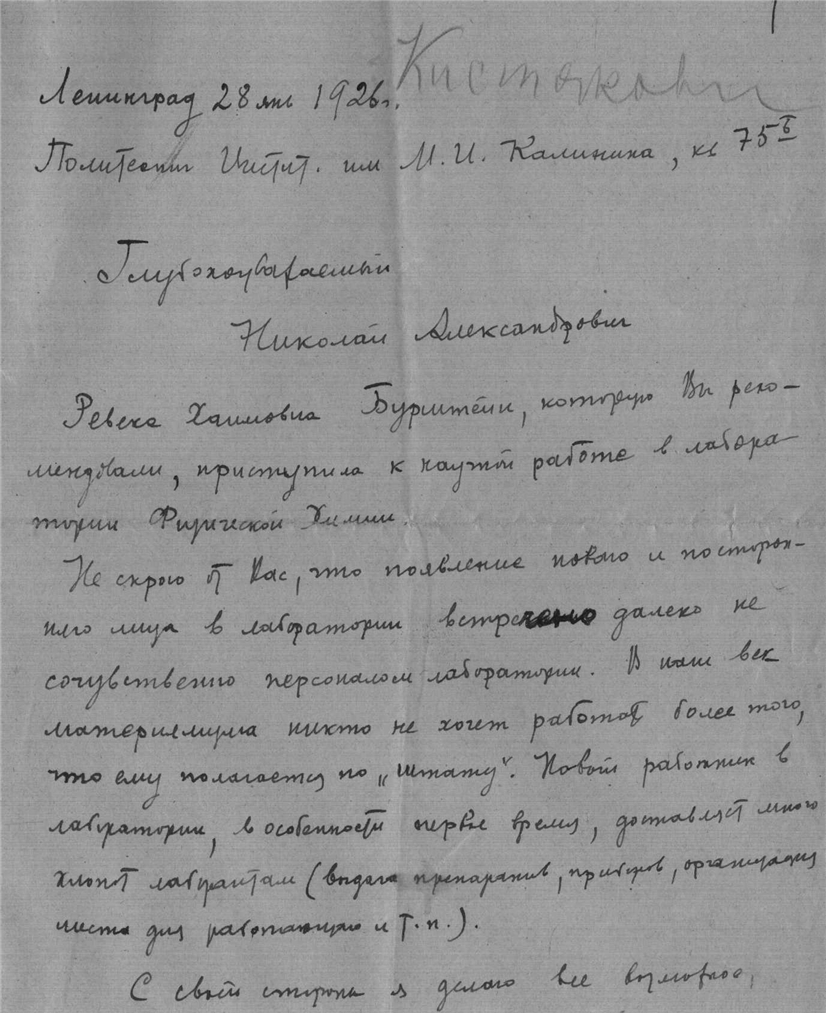 Кистяковский
Ленинград 28 янв 1926 г.
Политехн Инстит. им М. И. Калинина, кв 75 б
Глубокоуважаемый
Николай Александрович
Ревека Хаимовна Бурштейн, которую Вы реко-
мендовали, приступила к научной работе в лабора-
тории Физической Химии.
Не скрою от Вас, что появление нового и посторон-
него лица в лаборатории встречено далеко не
сочувственно персоналом лаборатории. В наш век
материализма никто не хочет работать более того,
что ему полагается по „штату“. Новый работник в
лаборатории, в особенности первое время, доставляет много
хлопот лаборантам (выдача препаратов, приборов, организация
места для работающего и т. п.).
С своей стороны я делаю все возможное,